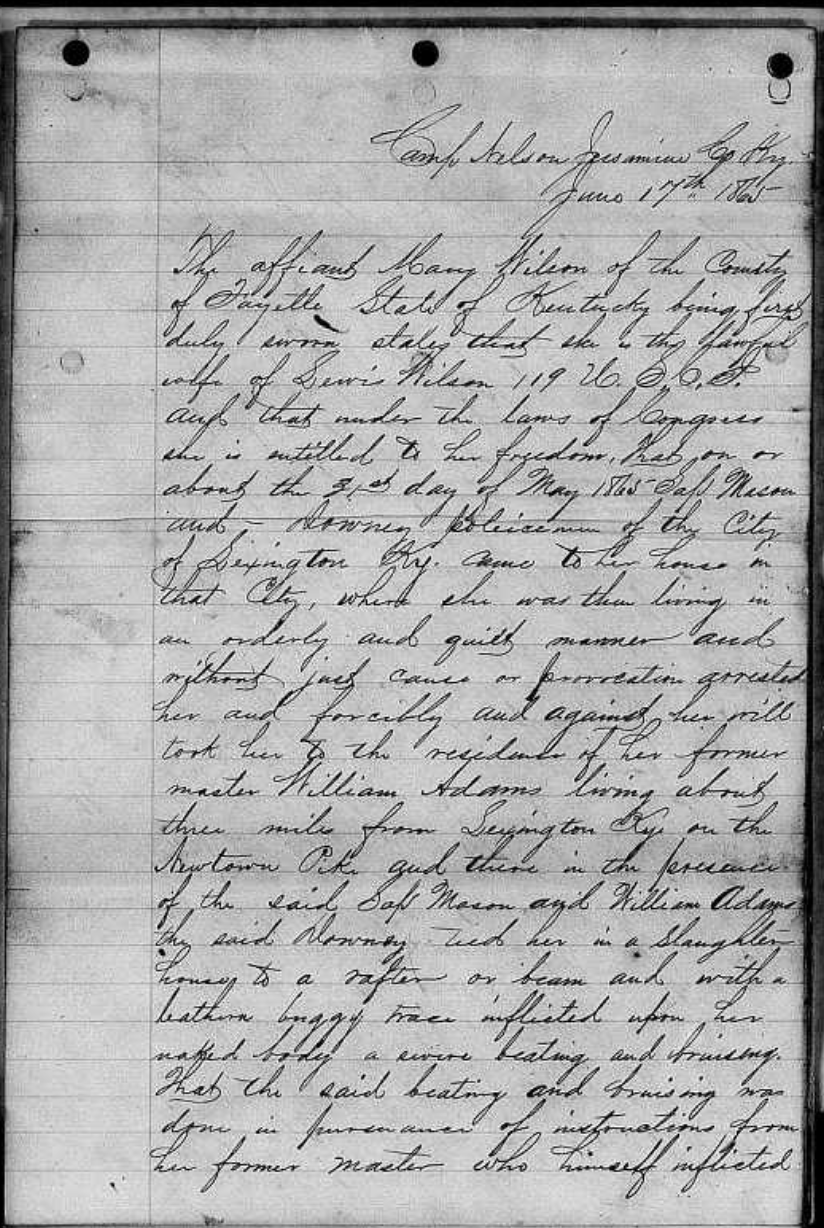 Camp Nelson Jessamine Co Ky.
June 17th 1865
The affiant Mary Wilson of the County
of Fayette State of Kentucky being first
duly sworn states that she is the lawful
wife of Lewis Wilson 119 U.S.C.T.
and that under the laws of Congress
she is entitled to her freedom, that on or
about the 31st day of May 1865 Mason
and – Downey policemen of the City
of Lexington Ky. came to her house in
that City, where she was then living in
an orderly and quiet manner and
without just cause or provocation arrested
her and forcibly and against her will
took her to the residence of her former
master William Adams living about
three miles from Lexington Ky on the
Newtown Pike and there in the presence
of the said Mason and William Adams
the said Downey tied her in a slaughter
house to a rafter or beam and with a
leathern buggy trace inflicted upon her
naked body a severe beating and bruising.
That the said beating and bruising was
done in pursuance of instructions from
her former master who himself inflicted